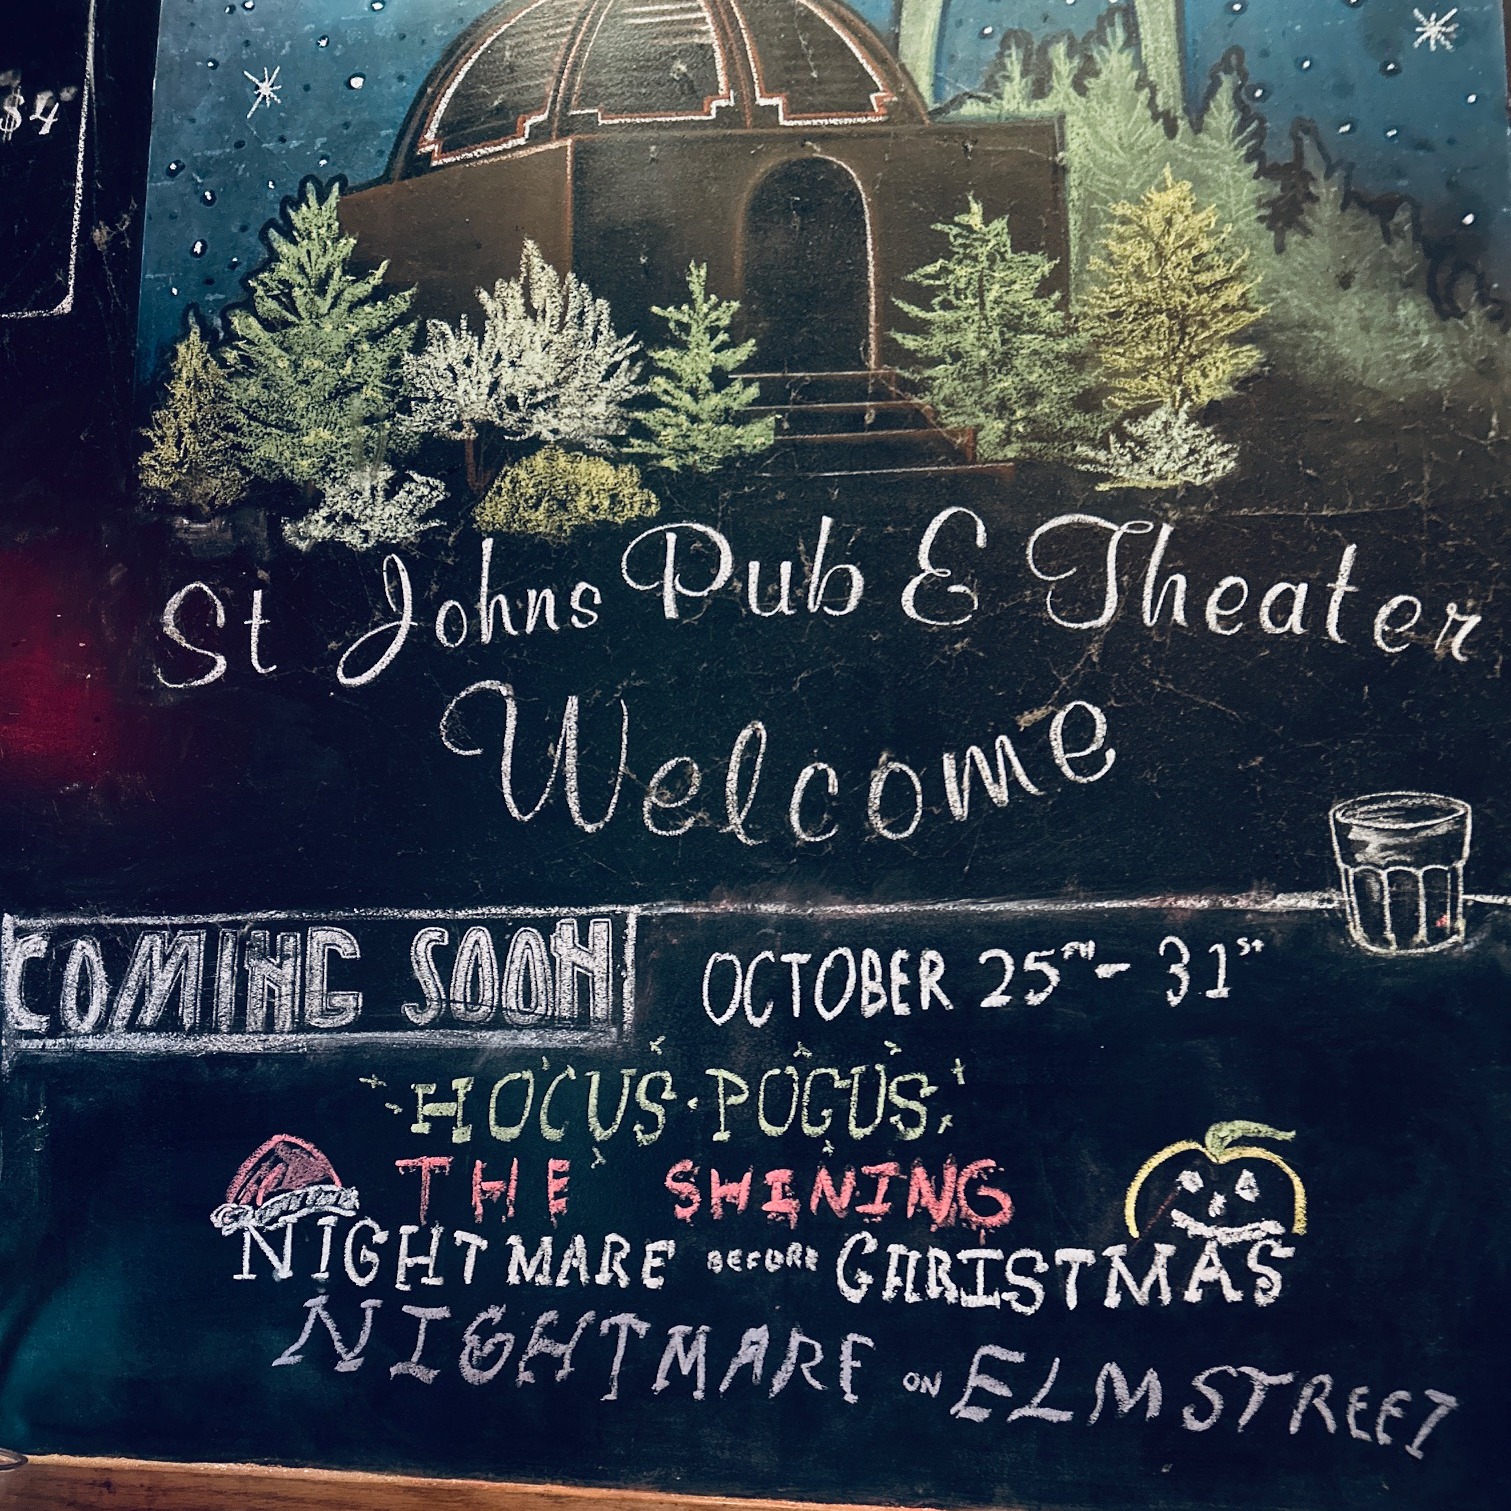 $4
St Johns Pub & Theater
Welcome
COMING SOON
OCTOBER 25TH - 31ST
HOCUS POCUS
THE SHINING
NIGHTMARE BEFORE CHRISTMAS
NIGHTMARE ON ELM STREET